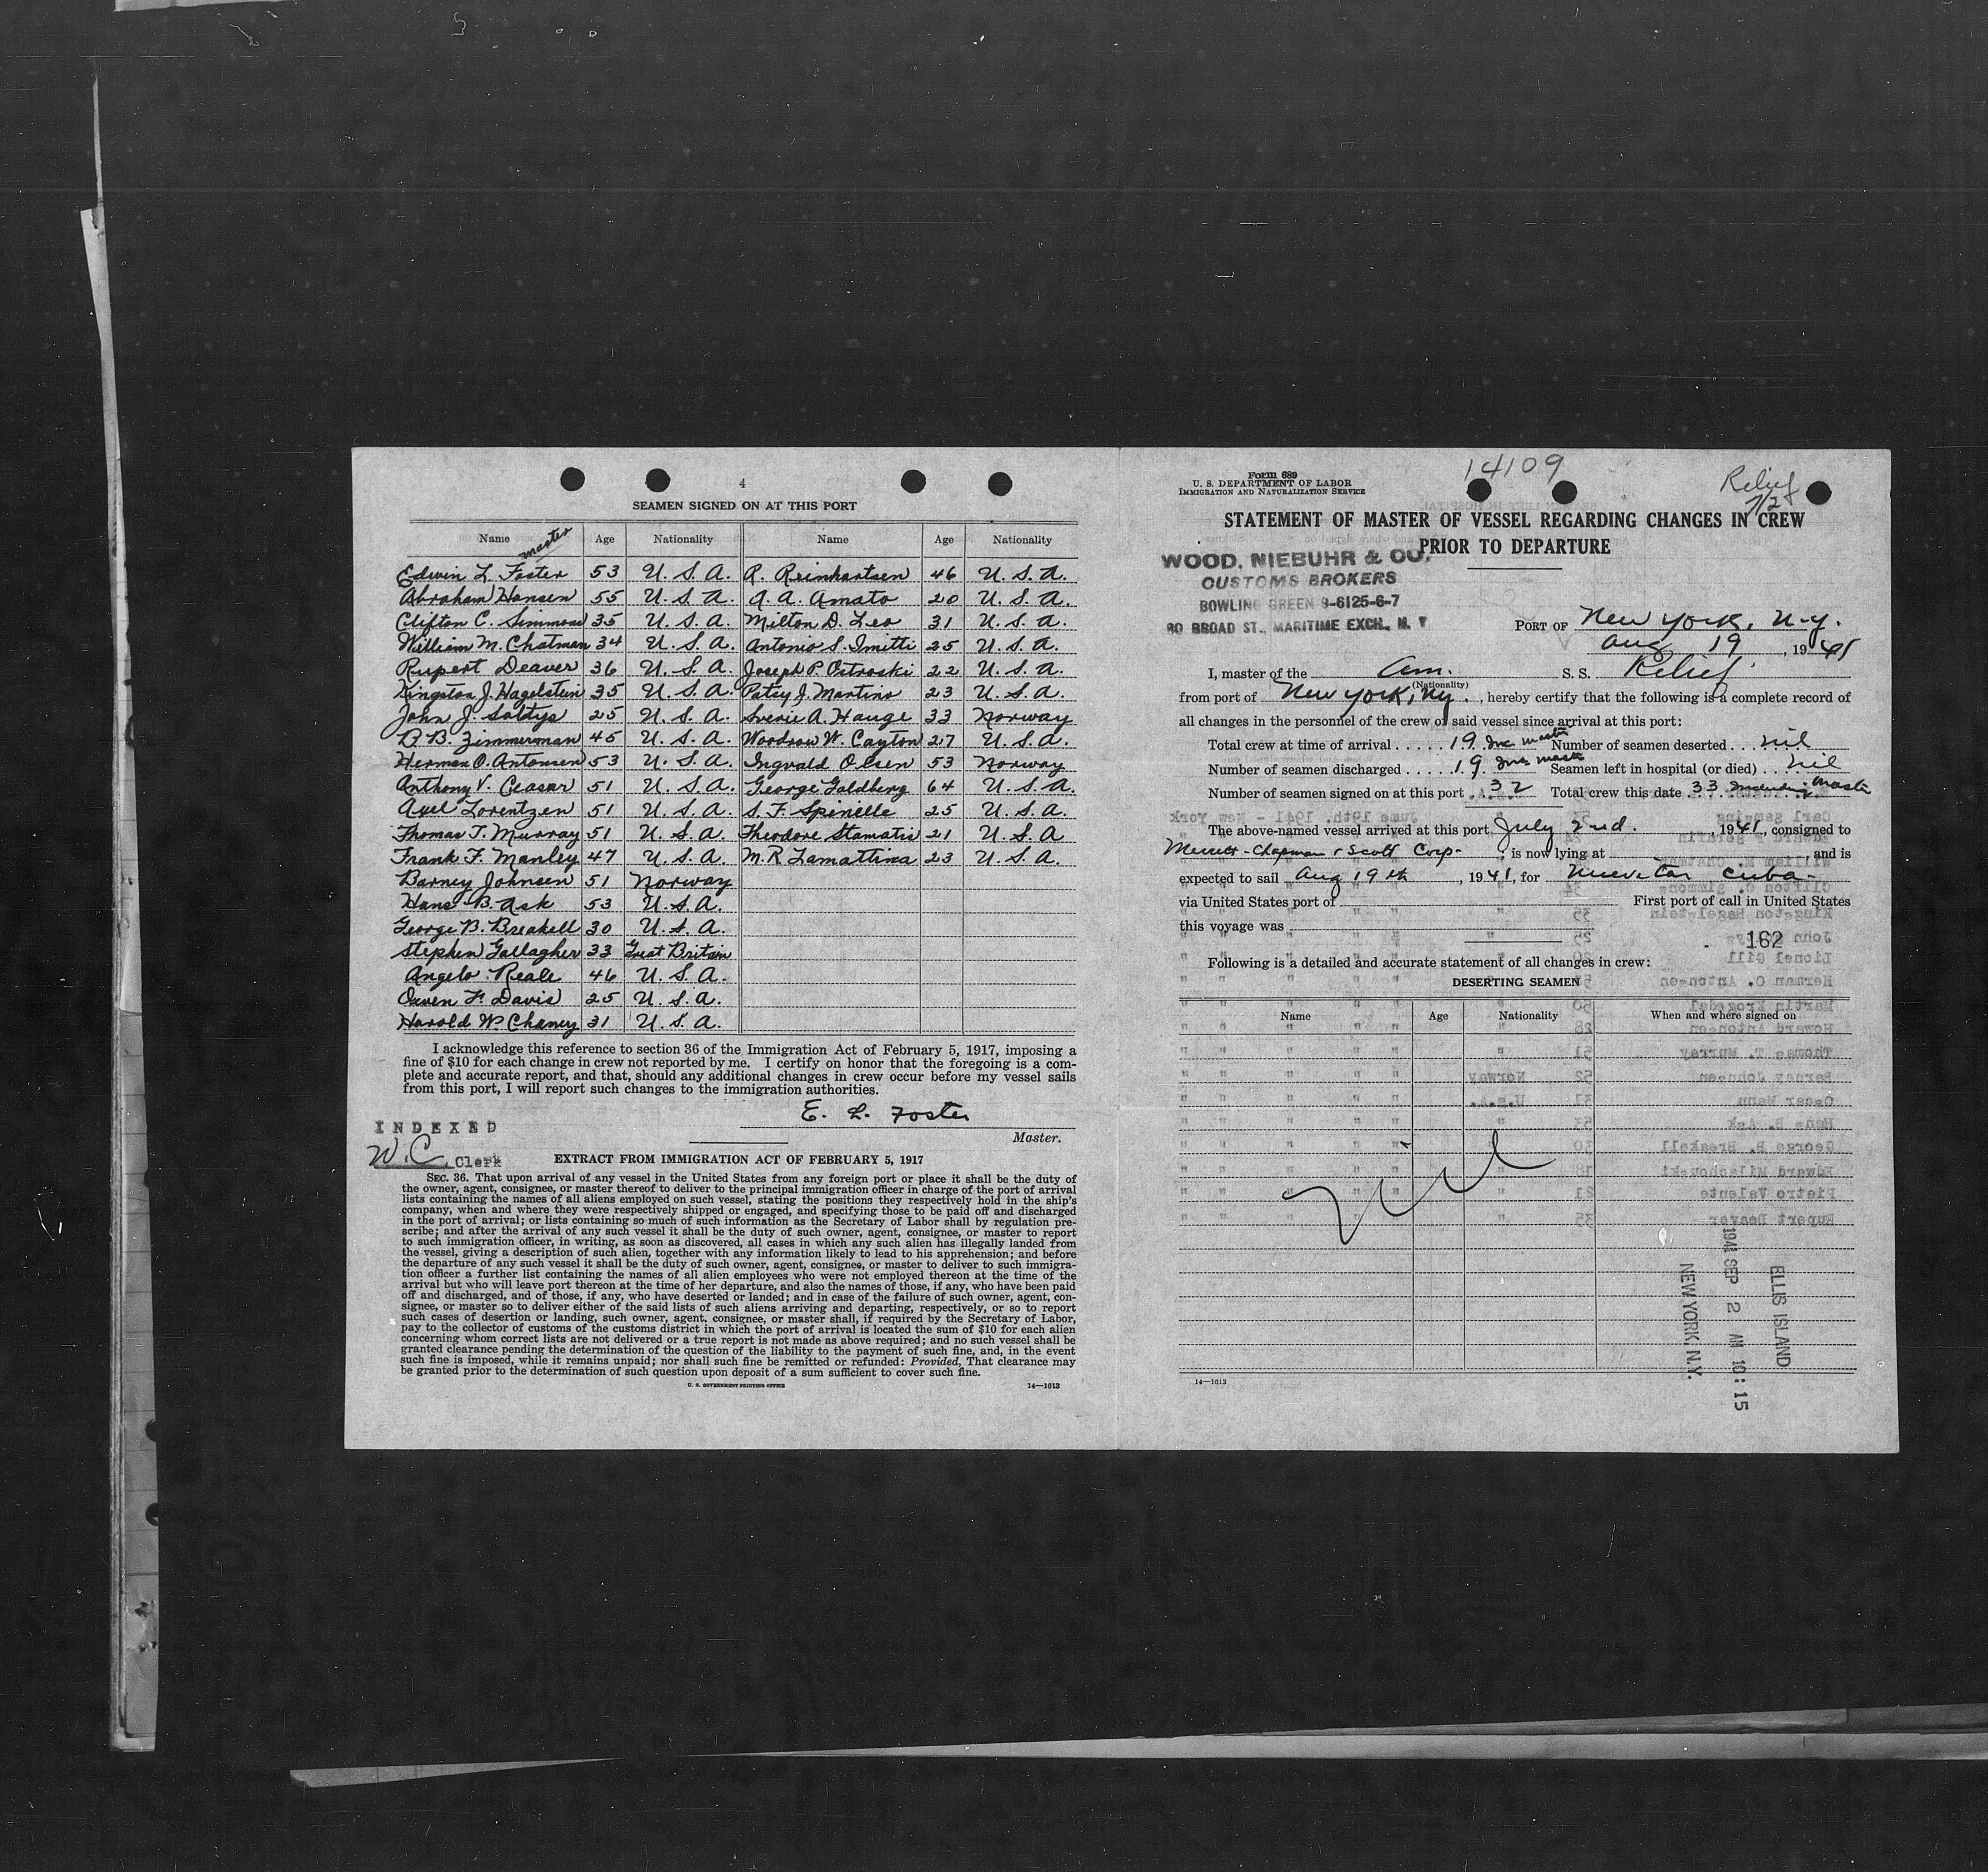 4
SEAMEN SIGNED ON AT THIS PORT
Name Age Nationality Name Age Nationality
master
Edwin L. Foster 53 U. S. A. R. Reinhartsen 46 U. S. A.
Abraham Hansen 55 U. S. A. A. A. Amato 20 U. S. A.
Clifton C. Simmons 35 U. S. A. Milton D. Leo 31 U. S. A.
William M. Chatman 34 U. S. A. Antonio S. Imitti 25 U. S. A.
Rupert Deaver 36 U. S. A. Joseph P. Ostroski 22 U. S. A.
Kingston J. Hagelstein 35 U. S. A. Patsy J. Martino 23 U. S. A.
John J. Soltys 25 U. S. A. Sverie A. Hauge 33 Norway
B. B. Zimmerman 45 U. S. A. Woodrow W. Cayton 27 U. S. A.
Herman O. Antonsen 53 U. S. A. Ingvald Olsen 53 Norway
Anthony V. Ceasar 51 U. S. A. George Goldberg 64 U. S. A.
Axel Lorentzen 51 U. S. A. S. F. Spinelle 25 U. S. A.
Thomas T. Murray 51 U. S. A. Theodore Stamatis 21 U. S. A
Frank F. Manley 47 U. S. A. M. R. Lamattina 23 U. S. A.
Barney Johnsen 51 Norway
Hans B. Ask 53 U. S. A.
George B. Breakell 30 U. S. A.
Stephen Gallagher 33 Great Britain
Angelo Reale 46 U. S. A.
Owen F. Davis 25 U. S. A.
Harold W. Chaney 31 U. S. A.
I acknowledge this reference to section 36 of the Immigration Act of February 5, 1917, imposing a
fine of $10 for each change in crew not reported by me. I certify on honor that the foregoing is a com-
plete and accurate report, and that, should any additional changes in crew occur before my vessel sails
from this port, I will report such changes to the immigration authorities.
E. L. Foster
Master.
INDEXED
W. C. Clerk
EXTRACT FROM IMMIGRATION ACT OF FEBRUARY 5, 1917
SEC. 36. That upon arrival of any vessel in the United States from any foreign port or place it shall be the duty of
the owner, agent, consignee, or master thereof to deliver to the principal immigration officer in charge of the port of arrival
lists containing the names of all aliens employed on such vessel, stating the positions they respectively hold in the ship's
company, when and where they were respectively shipped or engaged, and specifying those to be paid off and discharged
in the port of arrival; or lists containing so much of such information as the Secretary of Labor shall by regulation pre-
scribe; and after the arrival of any such vessel it shall be the duty of such owner, agent, consignee, or master to report
to such immigration officer, in writing, as soon as discovered, all cases in which any such alien has illegally landed from
the vessel, giving a description of such alien, together with any information likely to lead to his apprehension; and before
the departure of any such vessel it shall be the duty of such owner, agent, consignee, or master to deliver to such immigra-
tion officer a further list containing the names of all alien employees who were not employed thereon at the time of the
arrival but who will leave port thereon at the time of her departure, and also the names of those, if any, who have been paid
off and discharged, and of those, if any, who have deserted or landed; and in case of the failure of such owner, agent, con-
signee, or master so to deliver either of the said lists of such aliens arriving and departing, respectively, or so to report
such cases of desertion or landing, such owner, agent, consignee, or master shall, if required by the Secretary of Labor,
pay to the collector of customs of the customs district in which the port of arrival is located the sum of $10 for each alien
concerning whom correct lists are not delivered or a true report is not made as above required; and no such vessel shall be
granted clearance pending the determination of the question of the liability to the payment of such fine, and, in the event
such fine is imposed, while it remains unpaid; nor shall such fine be remitted or refunded: Provided, That clearance may
be granted prior to the determination of such question upon deposit of a sum sufficient to cover such fine.
U. S. GOVERNMENT PRINTING OFFICE 14—1613
Form 689
U. S. DEPARTMENT OF LABOR
IMMIGRATION AND NATURALIZATION SERVICE
14109
Relief
7/2
STATEMENT OF MASTER OF VESSEL REGARDING CHANGES IN CREW
PRIOR TO DEPARTURE
WOOD, NIEBUHR & CO.
CUSTOMS BROKERS
BOWLING GREEN 9-6125-6-7
80 BROAD ST., MARITIME EXCH., N. Y.
PORT OF New York, N.Y.
Aug 19, 1941
I, master of the Am. S. S. Relief
(Nationality)
from port of New York, NY., hereby certify that the following is a complete record of
all changes in the personnel of the crew of said vessel since arrival at this port:
Total crew at time of arrival . . . . . 19 Inc master Number of seamen deserted . . . nil
Number of seamen discharged . . . . 19 Inc master Seamen left in hospital (or died) . . nil
Number of seamen signed on at this port 32 Total crew this date 33 including Master
The above-named vessel arrived at this port July 2nd., 1941, consigned to
Merritt-Chapman & Scott Corp., is now lying at , and is
expected to sail Aug 19th, 1941, for Nuevitas Cuba
via United States port of First port of call in United States
this voyage was
162
Following is a detailed and accurate statement of all changes in crew:
DESERTING SEAMEN
Name Age Nationality When and where signed on
Nil
1941 SEP 2 AM 10:15
ELLIS ISLAND
NEW YORK, N.Y.
14—1613